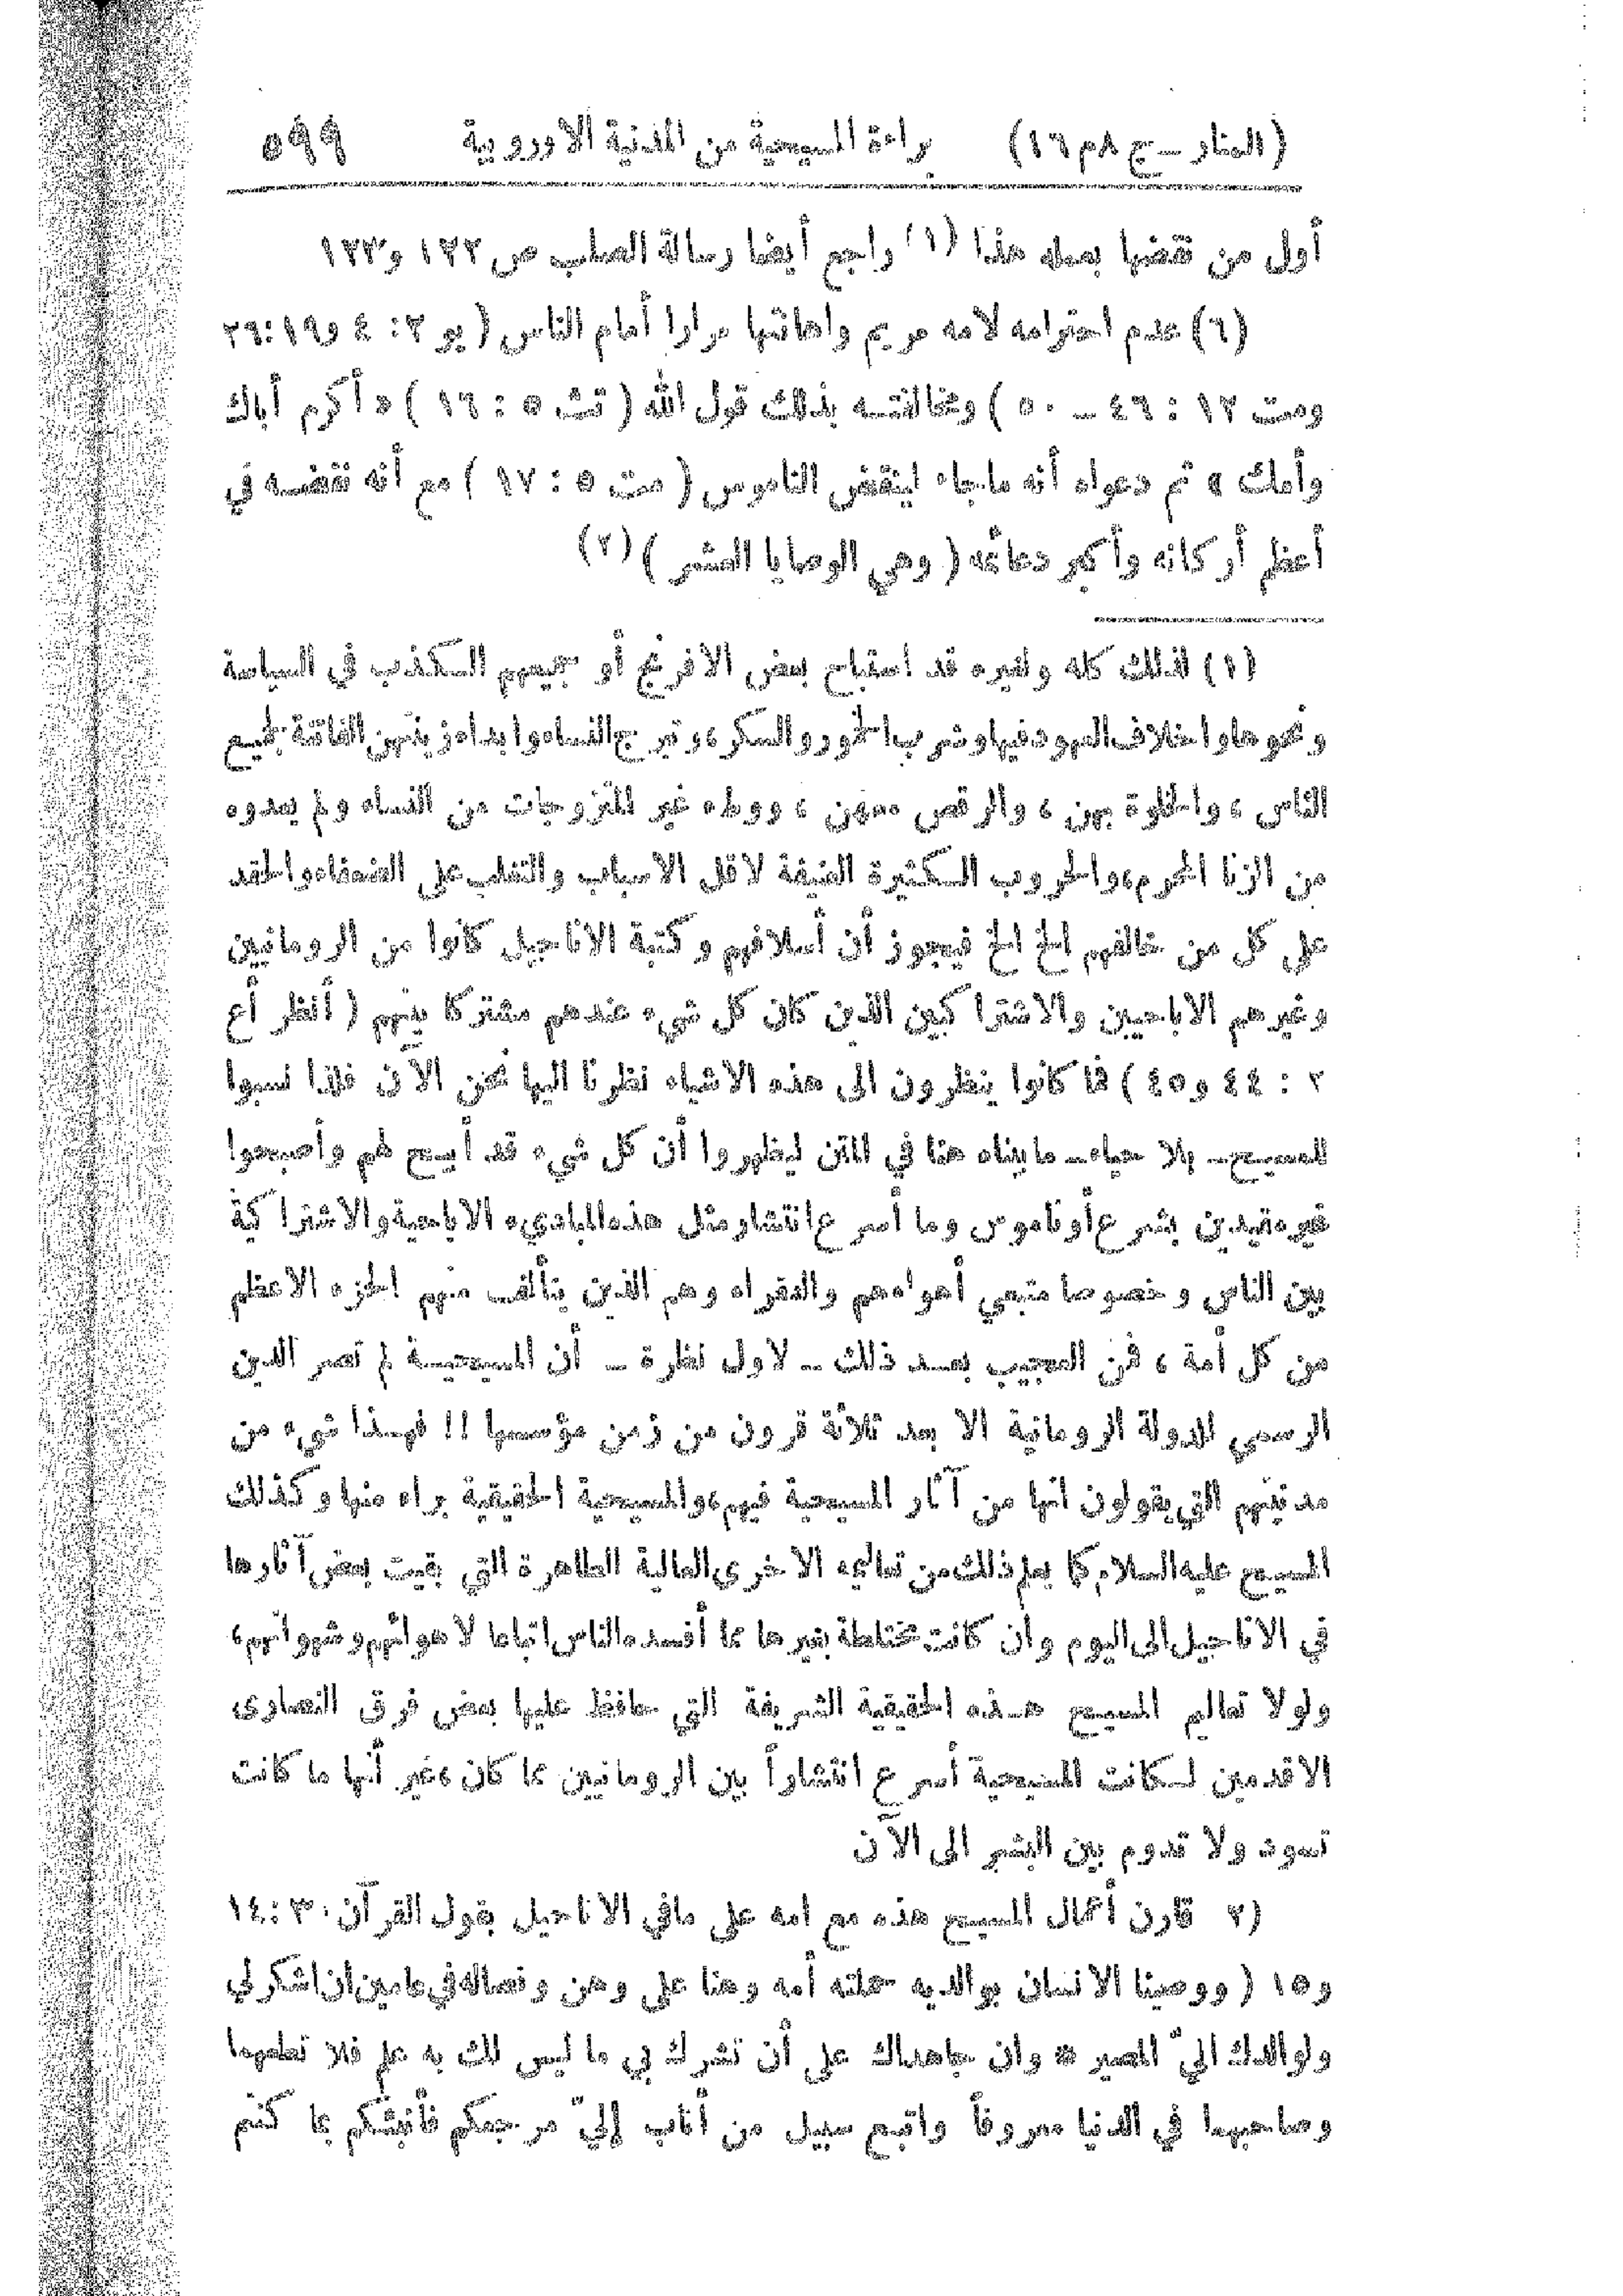 (المنار – ج ٨ م ١٦) براءة المسيحية من المدنية الاوروبية ٥٩٩
أول من نقضها بعمله هذا (١) راجع أيضا رسالة الصلب ص ١٢٢ و١٢٣
(٦) عدم احترامه لامه مريم واهانتها مرارا أمام الناس (يو ٢: ٤ و١٩:٢٦
ومت ١٢ : ٤٦ – ٥٠ ) ومخالفته بذلك قول الله ( تث ٥ : ١٦ ) « أكرم أباك
وأمك » ثم دعواه أنه ماجاء لينقض الناموس ( مت ٥ : ١٧ ) مع أنه نقضه في
أعظم أركانه وأكبر دعائمه ( وهي الوصايا العشر ) (٢)
(١) لذلك كله ولغيره قد استباح بعض الافرنج أو جميعهم الكذب في السياسة
ونحوها واخلاف العهود فيها وشرب الخمور والسكر ، وتبرج النساء وابداء زينتهن الفاتنة لجميع
الناس ، والخلوة بهن ، والرقص معهن ، ووطء غير المتزوجات من النساء ولم يعدوه
من الزنا المحرم ، والحروب الكثيرة العنيفة لاقل الاسباب والتغلب على الضعفاء والحقد
على كل من خالفهم الخ الخ فيجوز أن أسلافهم وكتبة الاناجيل كانوا من الرومانيين
وغيرهم الاباحيين والاشتراكيين الذين كان كل شيء عندهم مشتركا بينهم ( أنظر أع
٢ : ٤٤ و ٤٥ ) فما كانوا ينظرون الى هذه الاشياء نظرنا اليها نحن الآن فلذا نسبوا
للمسيح – بلا حياء – ما بيناه هنا في المتن ليظهروا أن كل شيء قد أبيح لهم وأصبحوا
غير مقيدين بشرع أو ناموس وما أسرع انتشار مثل هذه المباديء الاباحية والاشتراكية
بين الناس وخصوصا متبعي أهواءهم والفقراء وهم الذين يتألف منهم الجزء الاعظم
من كل أمة ، فمن العجيب بعد ذلك – لاول نظرة – أن المسيحية لم تصر الدين
الرسمي للدولة الرومانية الا بعد ثلاثة قرون من زمن مؤسسها !! فهذا شيء من
مدنيتهم التي يقولون انها من آثار المسيحية فيهم ، والمسيحية الحقيقية براء منها وكذلك
المسيح عليه السلام كما يعلم ذلك من تعاليمه الاخرى العالية الطاهرة التي بقيت بعض آثارها
في الاناجيل الى اليوم وان كانت مختلطة بغيرها مما أفسده الناس اتباعا لاهوائهم وشهواتهم ،
ولولا تعاليم المسيح هذه الحقيقية الشريفة التي حافظ عليها بعض فرق النصارى
الاقدمين لكانت المسيحية أسرع انتشاراً بين الرومانيين مما كان ، غير أنها ما كانت
تسود ولا تدوم بين البشر الى الآن
(٢ قارن أعمال المسيح هذه مع امه على مافي الاناجيل بقول القرآن ٣٠ : ١٤
و١٥ ( ووصينا الانسان بوالديه حملته أمه وهنا على وهن وفصاله في عامين ان اشكر لي
ولوالديك اليّ المصير * وان جاهداك على أن تشرك بي ما ليس لك به علم فلا تطعهما
وصاحبهما في الدنيا معروفاً واتبع سبيل من أناب إليّ ثم مرجعكم فأنبئكم بما كنتم